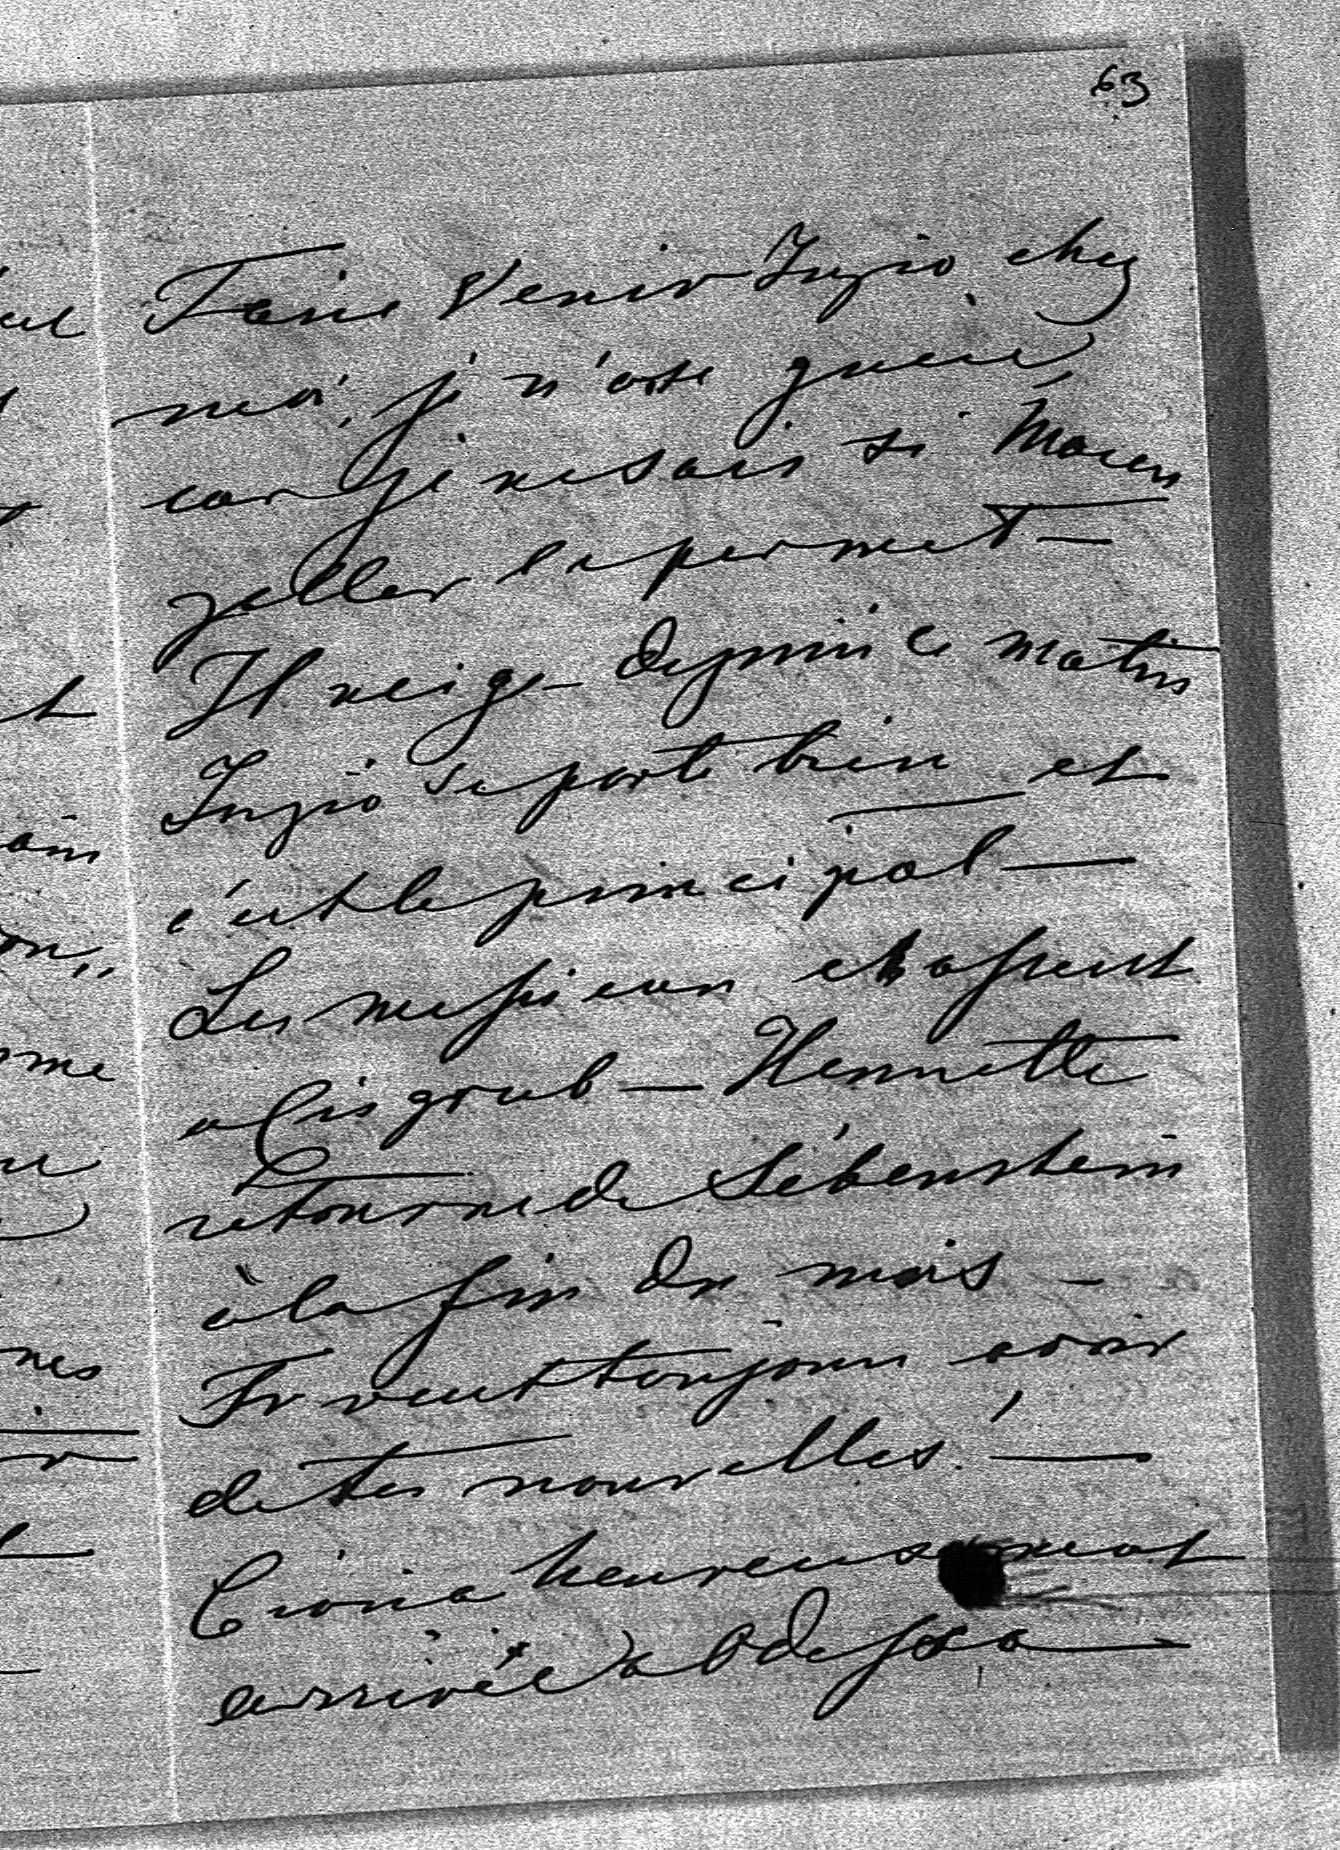 63
Faire venir Inzio chez
moi, je n'ose guère,
car je ne sais si Maien
zeller le permet —
Il neige depuis ce matin
Inzio se porte bien et
c'est le principal —
Les messieurs chassent
a Cisgrub — Henriette
retourne de Sebenstein
à la fin du mois —
Fr veut toujours avoir
de tes nouvelles! —
heureusement
arrivée a Odessa —